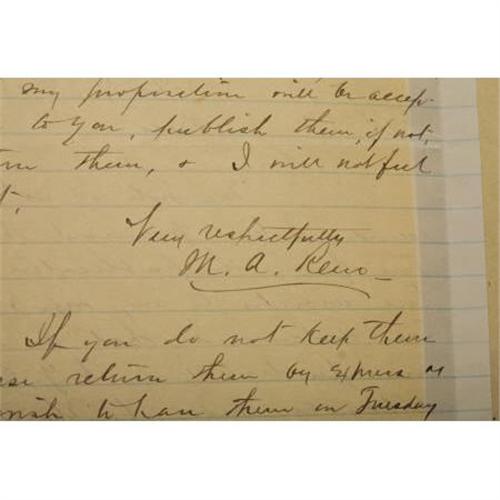 my proposition will be accep-
to you, publish them, if not,
them, & I will not feel
Very respectfully
M. A. Reno
If you do not keep them
return them by express as
wish to have them on Tuesday